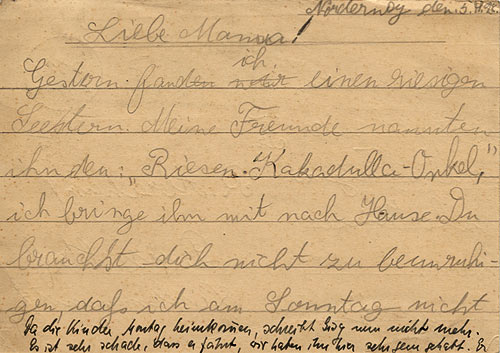 Norderney den 5.
Liebe Mama!
ich
Gestern fanden wir einen riesigen
Seestern. Meine Freunde nannten
ihn den: „Riesen-Kakadulla-Onkel,"
ich bringe ihn mit nach Hause. Du
brauchst dich nicht zu beunruhi-
gen daß ich am Sonntag nicht
Da die Kinder Montag heimkommen, schreibt nun nicht mehr.
Es ist sehr schade, dass er fährt, wir haben ihn hier sehr gern gehabt. Er